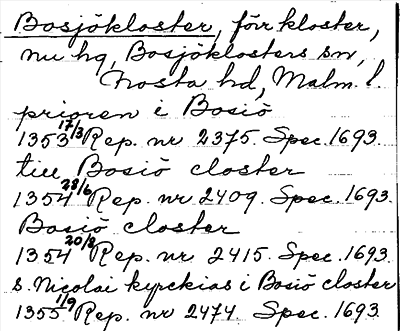 Bosjökloster, förr kloster,
nu hg, Bosjöklosters sn,
Frosta hd, Malm. l
prioren i Bosiö
1353 17/3 Rep. nr 2375. Spec. 1693.
till Bosiö closter
1354 28/6 Rep. nr 2409. Spec. 1693.
Bosiö closter
1354 20/8 Rep. nr 2415. Spec. 1693.
s. Nicolai kyrckias i Bosiö closter
1355 1/9 Rep. nr 2474. Spec. 1693.